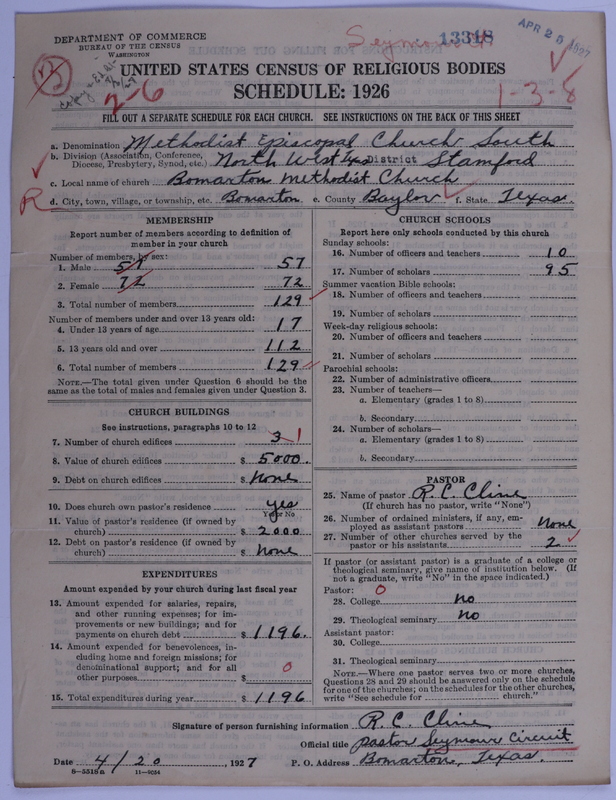 DEPARTMENT OF COMMERCE
BUREAU OF THE CENSUS
WASHINGTON
13318
APR 25 1927
2-6
1-3-8
UNITED STATES CENSUS OF RELIGIOUS BODIES
SCHEDULE: 1926
FILL OUT A SEPARATE SCHEDULE FOR EACH CHURCH. SEE INSTRUCTIONS ON THE BACK OF THIS SHEET
a. Denomination Methodist Episcopal Church South
b. Division (Association, Conference, Diocese, Presbytery, Synod, etc.) North West Tex District Stamford
c. Local name of church Bomarton Methodist Church
R d. City, town, village, or township, etc. Bomarton e. County Baylor f. State Texas.
MEMBERSHIP
Report number of members according to definition of
member in your church
Number of members, by sex:
1. Male 57 57
2. Female 72 72
3. Total number of members 129
Number of members under and over 13 years old:
4. Under 13 years of age 17
5. 13 years old and over 112
6. Total number of members 129
NOTE.—The total given under Question 6 should be the
same as the total of males and females given under Question 3.
CHURCH BUILDINGS
See instructions, paragraphs 10 to 12
7. Number of church edifices 3 1
8. Value of church edifices $ 5000.
9. Debt on church edifices $ None
10. Does church own pastor's residence yes
Yes or No
11. Value of pastor's residence (if owned by
church) $ 2000
12. Debt on pastor's residence (if owned by
church) $ None
EXPENDITURES
Amount expended by your church during last fiscal year
13. Amount expended for salaries, repairs,
and other running expenses; for im-
provements or new buildings; and for
payments on church debt $ 1196.
14. Amount expended for benevolences, in-
cluding home and foreign missions; for
denominational support; and for all
other purposes $ 0
15. Total expenditures during year $ 1196
CHURCH SCHOOLS
Report here only schools conducted by this church
Sunday schools:
16. Number of officers and teachers 10
17. Number of scholars 95
Summer vacation Bible schools:
18. Number of officers and teachers
19. Number of scholars
Week-day religious schools:
20. Number of officers and teachers
21. Number of scholars
Parochial schools:
22. Number of administrative officers
23. Number of teachers—
a. Elementary (grades 1 to 8)
b. Secondary
24. Number of scholars—
a. Elementary (grades 1 to 8)
b. Secondary
PASTOR
25. Name of pastor R. C. Cline
(If church has no pastor, write "None")
26. Number of ordained ministers, if any, em-
ployed as assistant pastors None
27. Number of other churches served by the
pastor or his assistants 2
If pastor (or assistant pastor) is a graduate of a college or
theological seminary, give name of institution below. (If
not a graduate, write "No" in the space indicated.)
Pastor: 0
28. College No
29. Theological seminary No
Assistant pastor:
30. College
31. Theological seminary
NOTE.—Where one pastor serves two or more churches,
Questions 28 and 29 should be answered only on the schedule
for one of the churches; on the schedules for the other churches,
write "See schedule for church."
Signature of person furnishing information R. C. Cline
Official title Pastor Seymour Circuit
Date 4/20, 1927 P. O. Address Bomarton, Texas.
8-5518a 11-9054